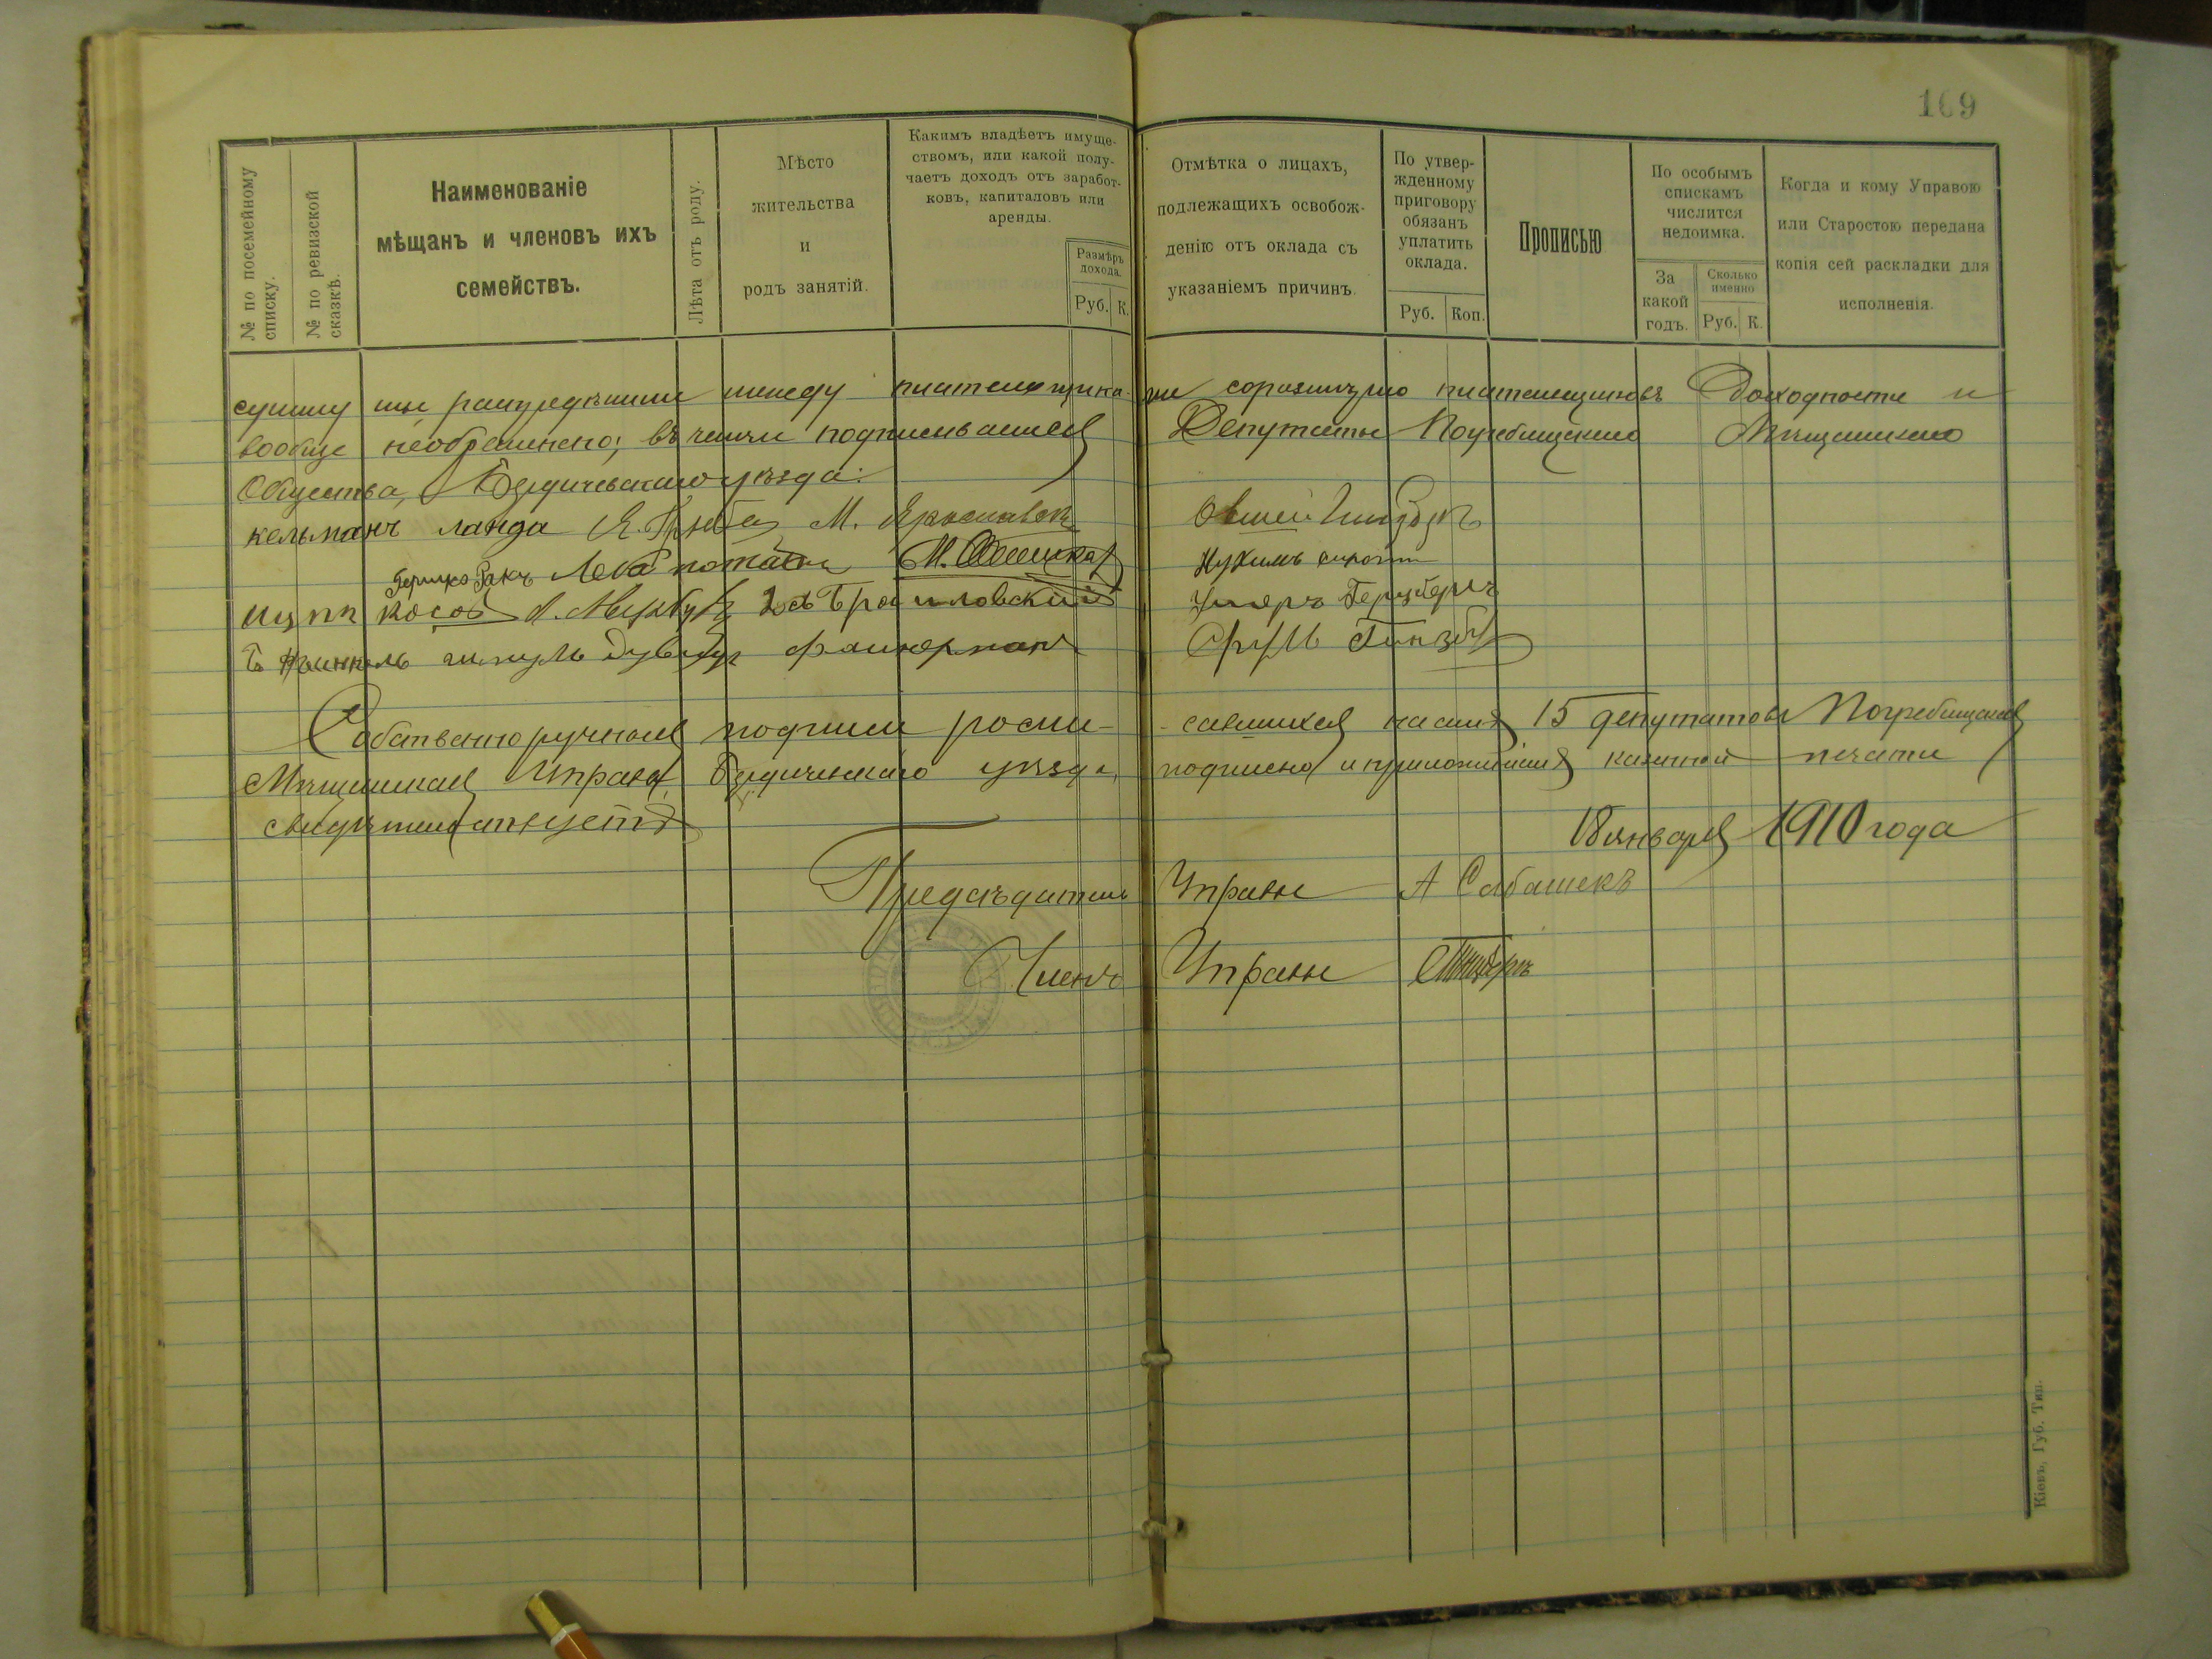 169
№ по посемейному списку.
№ по ревизской сказкѣ.
Наименованіе
мѣщанъ и членовъ ихъ
семействъ.
Лѣта отъ роду.
Мѣсто
жительства
и
родъ занятій.
Какимъ владѣетъ имуще-
ствомъ, или какой полу-
чаетъ доходъ отъ заработ-
ковъ, капиталовъ или
аренды.
Размѣръ
дохода.
Руб. К.
Отмѣтка о лицахъ,
подлежащихъ освобож-
денію отъ оклада съ
указаніемъ причинъ.
По утвер-
жденному
приговору
обязанъ
уплатить
оклада.
Руб. Коп.
Прописью
По особымъ
спискамъ
числится
недоимка.
За
какой
годъ.
Сколько
именно
Руб. К.
Когда и кому Управою
или Старостою передана
копія сей раскладки для
исполненія.
сумму мы распредѣлили между плательщика-ми соразмѣрно плательщиковъ доходности и
вообще необременено, въ чемъ подписываемся Депутаты Погребищскаго Мѣщанскаго
Общества, Бердичевскаго уѣзда:
кельманъ ланда М. Ярославск Овшей
Гершко Ракъ Лейб М. Нухимъ
косой Браиловскій Герцбергъ
шмуль файнерман Сруль Гинзбу
Собственноручная подписи роспи-савшихся 15 депутатовъ Погребищская
Мѣщанская Управа, Бердичевскаго уѣзда, подписью и приложеніемъ казенной печати
свидѣтельствуетъ
18 января 1910 года
Предсѣдатель Управы А Сабашекъ
Членъ Управы
Кіевъ, Губ. Тип.